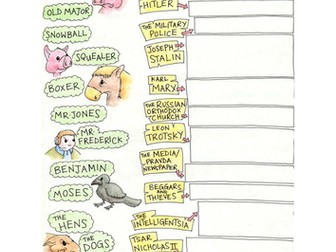 HITLER
OLD MAJOR
THE MILITARY
POLICE
SNOWBALL
JOSEPH
STALIN
SQUEALER
KARL
MARX
BOXER
THE RUSSIAN
ORTHODOX
CHURCH
MR JONES
LEON
TROTSKY
MR
FREDERICK
THE MEDIA/
PRAVDA
NEWSPAPER
BENJAMIN
BEGGARS
AND
THIEVES
MOSES
THE
INTELLIGENTSIA
THE
HENS
TSAR
NICHOLAS II
THE
DOGS